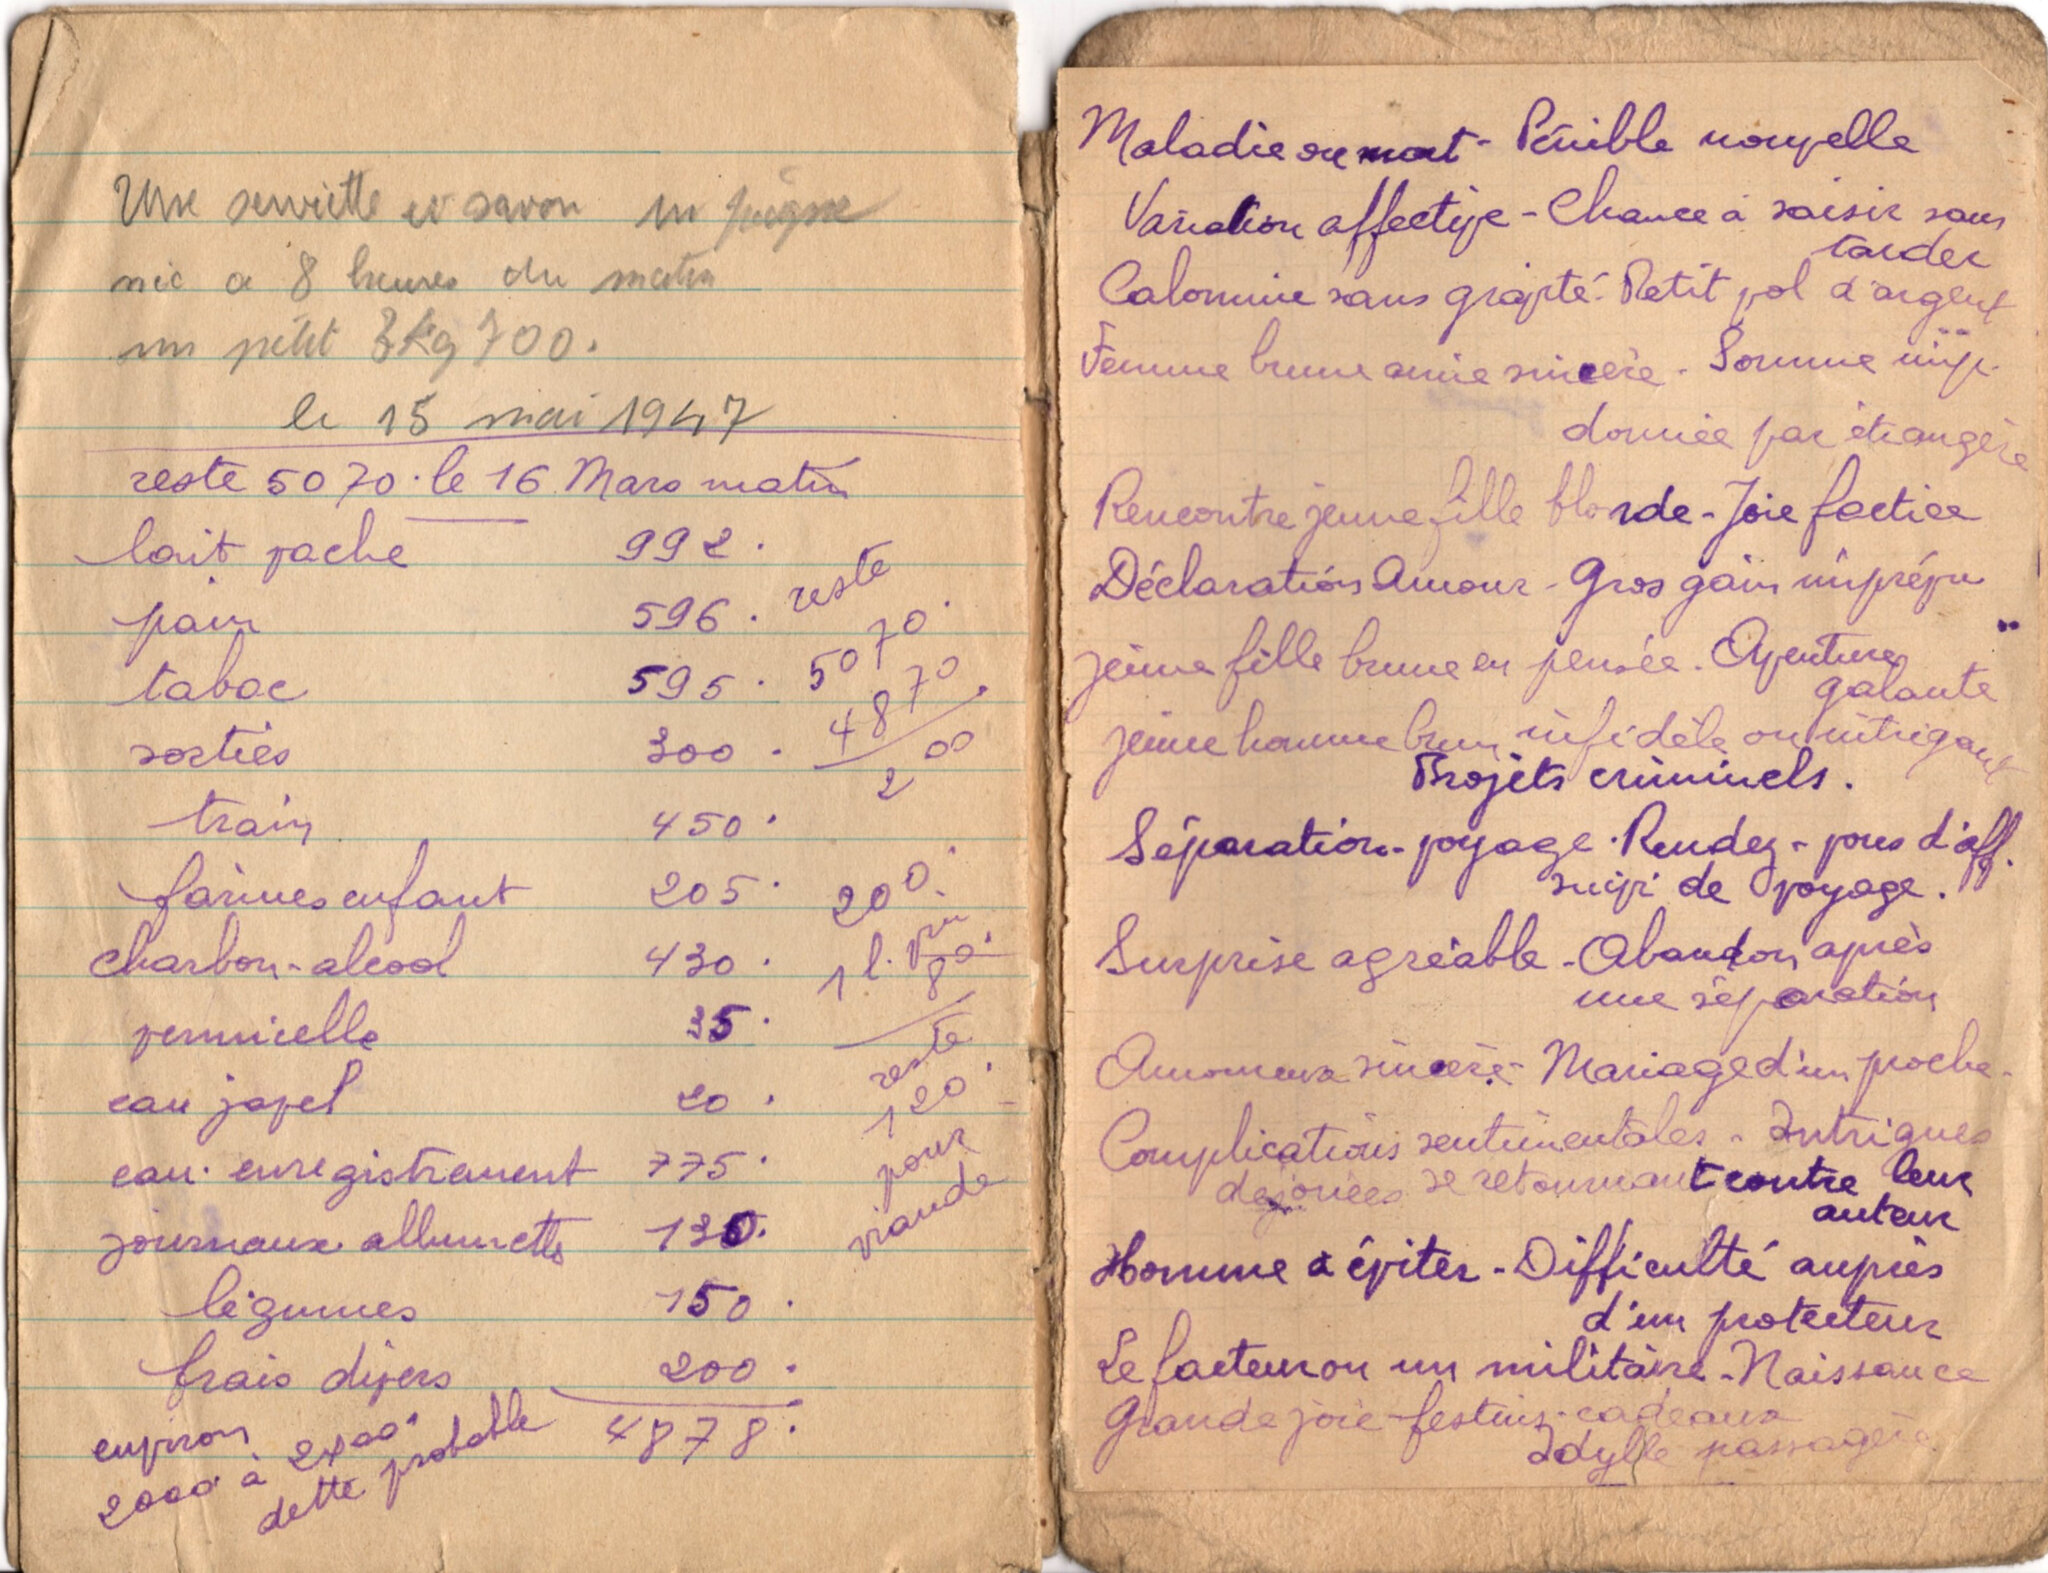 Une serviette et savon un peigne
nic a 8 heures du matin
un petit 3kg700.
le 15 mai 1947
reste 5070. le 16 Mars matin
lait vache 992.
pain 596.
tabac 595.
sorties 300.
train 450.
farines enfant 205.
charbon-alcool 430.
vermicelle 35.
eau javel 20.
eau. enregistrement 775.
journaux allumettes 130.
légumes 150.
frais divers 200.
4878.
environ
2000. à 2400.
dette probable
reste
5070.
4870.
200
200.
1 l. vin
80.
reste
120.
pour
viande
Maladie ou mort - Pénible nouvelle
Variation affective - Chance à saisir sans
tarder
Calomnie sans gravité. Petit vol d'argent
Femme brune amie sincère. Somme
donnée par étrangère
Rencontre jeune fille blonde - Joie factice
Déclaration Amour - Gros gain imprévu
jeune fille brune en pensée. Aventure
galante
jeune homme brun infidèle ou intrigant
Projets criminels.
Séparation - voyage. Rendez-vous d'aff.
suivi de voyage.
Surprise agréable - Abandon après
une séparation
Amoureux sincère - Mariage d'un proche.
Complications sentimentales - Intrigues
dejouées se retournant contre leur
auteur
Homme à éviter - Difficulté auprès
d'un protecteur
Le facteur ou un militaire - Naissance
Grande joie - festins - cadeaux
Idylle passagère